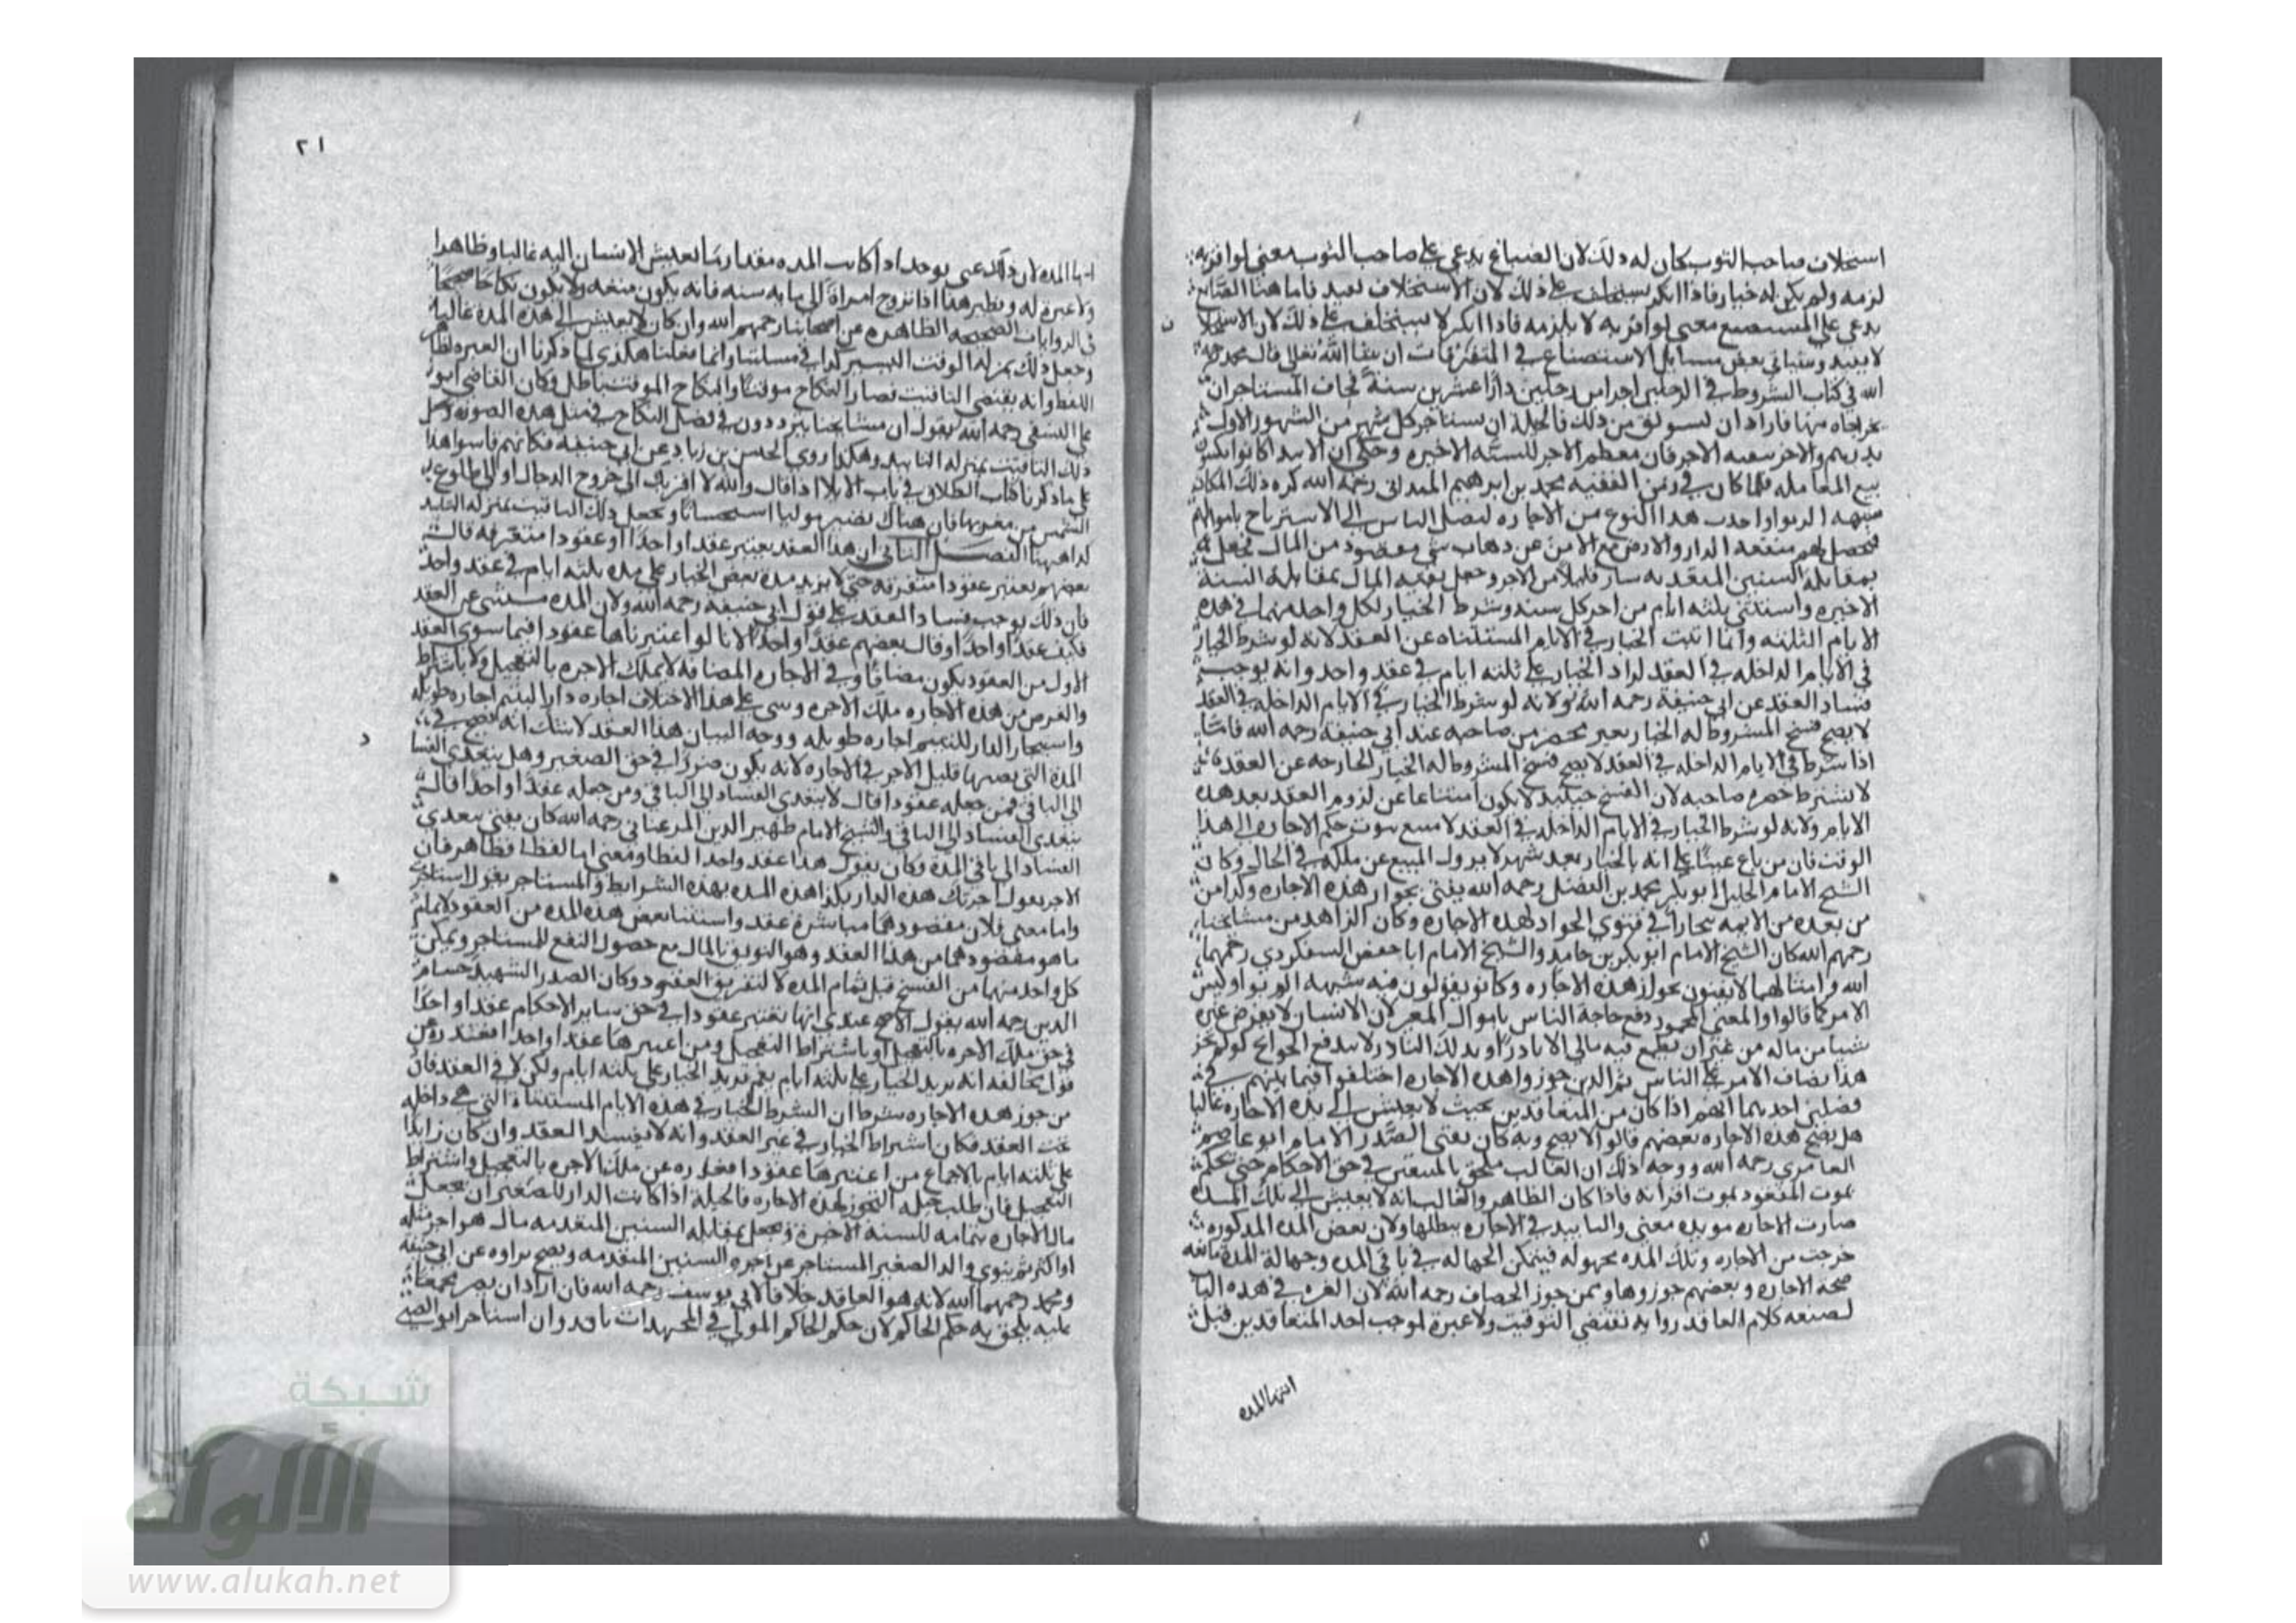 استحلاف صاحب الثوب كان له ذلك لان الصباغ يدعي على صاحب الثوب معنى لو اقر به
لزمه ولم يكن له خيار فاذا انكر يستحلف على ذلك لان الاستحلاف يفيد فاما هنا الصانع
يدعي على المستصنع معنى لو اقر به لا يلزمه فاذا انكر لا يستحلف على ذلك لان الاستحلا ف
لا يفيد وستاتي بعض مسايل الاستصناع في المتفرقات ان شا الله تعالى قال محمد رحمه
الله في كتاب الشروط في الرجلين اجرا من رجلين دارا عشرين سنة فخاف المستاجران
يخرجاه منها فاراد ان يستوثق من ذلك فالحيلة ان يستاجر كل شهر من الشهور الاول
بدرهم والاخر بنفسه الاجر فان معظم الاجر للسنة الاخيره وحكي ان الابتدا كانوا يكتبون
بيع المعامله فلما كان في زمن الفقيه محمد بن ابرهيم الميداني رحمه الله كره ذلك لمكان
شبهه الربوا واحدث هذا النوع من الاجاره ليصل الناس الى الاسترباح باموالهم
فيحصل لهم منفعه الدار والارض مع الامن عن ذهاب شي مقصود من المال فجعل
بمقابلة السنين المتقدمه شيا قليلا من الاجر وجعل بقيه المال بمقابلة السنة
الاخيره واستثنى ثلثه ايام من اخر كل سنه وشرط الخيار لكل واحد منهما في هذه
الايام الثلثه وانما اثبت الخيار في الايام المستثناه عن العقد لانه لو شرط الخيار
في الايام الداخله في العقد لزاد الخيار على ثلثه ايام في عقد واحد وانه يوجب
فساد العقد عن ابي حنيفة رحمه الله ولانه لو شرط الخيار في الايام الداخله في العقد
لا يصح فسخ المشروط له الخيار بغير محضر من صاحبه عند ابي حنيفة رحمه الله فاما
اذا شرط في الايام الداخله في العقد لا يصح فسخ المشروط له الخيار الخارجه عن العقد
لا يشترط حضره صاحبه لان الفسخ حينيذ لا يكون امتناعا عن لزوم العقد بعد هذه
الايام ولانه لو شرط الخيار في الايام الداخله في العقد لا متنع ثبوت حكم الاجاره الى هذا
الوقت فان من باع عينا على انه بالخيار بعد شهر لا يزول المبيع عن ملكه في الحال وكان
الشيخ الامام الجليل ابو بكر محمد بن الفضل رحمه الله يفتي بجواز هذه الاجاره وكذا من
من بعده من الايمه بخارا في فتوى الجواز لهذه الاجاره وكان الزاهد من مشايخنا
رحمهم الله كان الشيخ الامام ابو بكر بن حامد والشيخ الامام ابا حفص السفكردي رحمهما
الله وامثالهما لا يفتون بجواز هذه الاجاره وكانو يقولون فيه شبهه الربوا وليس
الامر كما قالوا والمعنى المجوز دفع حاجة الناس باموال الغير لان الانسان لا يقرض غيره
شيا من ماله من غير ان يطمع فيه مالي الا نادرا وبذلك النادر لا يندفع الحوايج لو لم يجز
هذا يضاف الامر على الناس ثم الذين جوزوا هذه الاجاره اختلفوا فيما بينهم في
فصلين احدهما انهم اذا كان من المتعاقدين بحيث لا يعيش الى مده الاجاره غالبا
هل يصح هذه الاجاره بعضهم قالوا لا يصح وبه كان يفتي الصدر الامام ابو عاصم
العامري رحمه الله ووجه ذلك ان الغالب ملحق بالمتيقن في حق الاحكام حتى يحكم
بموت المفقود بموت اقرانه فاذا كان الظاهر والغالب انه لا يعيش الى تلك المدة
صارت الاجاره موبده معنى والتابيد في الاجاره يبطلها ولان بعض المده المذكوره
خرجت من الاجاره وتلك المده مجهوله فيتمكن الجهاله في باقي المده وجهالة المدة مانعه
صحة الاجاره وبعضهم جوزوها وممن جوز الخصاف رحمه الله لان العبره في هذه البا
لصيغه كلام العاقد روايه تقتضي التوقيت ولا عبرة لموجب احد المتعاقدين قبل
انتها المده
٢١
انتها المده لان ذلك عسى يوجد اذا كانت المده مقدار ما يعيش الانسان اليه غالبا وظاهرا
ولا عبرة له ونظير هذا اذا تزوج امراة الى مايه سنه فانه يكون متعه ولا يكون نكاحا صحيحا
في الروايات الصحيحه الظاهره عن اصحابنا رحمهم الله وان كان لا يعيش الى هذه المدة غالبا
وجعل ذلك بمنزله الوقت اليسير كذا في مسالتنا وانما فعلنا هكذى لما ذكرنا ان العبره لظاهر
اللفظ وانه يقتضي التاقيت فصار النكاح موقتا والنكاح الموقت باطل وكان القاضي ابو
علي النسفي رحمه الله يقول ان مشايخنا يترددون في فصل النكاح في مثل هذه الصوره وجعل
ذلك التاقيت بمنزله التابيد وهكذا روي الحسن بن زياد عن ابي حنيفه فكانهم قاسوا هذا
على ما ذكرنا كتاب الطلاق في باب الايلا اذا قال والله لا اقربك الى خروج الدجال او الى طلوع
الشمس من مغربها فان هناك يصير موليا استحسانا ويجعل ذلك التاقيت بمنزله التابيد
كذا ههنا الفصل الثاني ان هذا العقد يعتبر عقدا واحدا او عقودا متفرقه قال
بعضهم يعتبر عقودا متفرقه حتى لا يزيد مدة بعض الخيار على مده ثلثه ايام في عقد واحد
فان ذلك يوجب فساد العقد على قول ابي حنيفه رحمه الله ولان المده مستثنى عن العقد
فكيف عقدا واحدا وقال بعضهم عقدا واحدا لانا لو اعتبرناها عقودا فيما سوى العقد
الاول من العقود يكون مضافا وفي الاجاره المضافه لا يملك الاجره بالتعجيل ولا باشتراط
والغرض من هذه الاجاره ملك الاجره وبنى على هذا الاختلاف اجاره دار اليتيم اجاره طويله
واستيجار الدار لليتيم اجاره طويله ووجه البيان هذا العقد لا شك انه يصح في
المدة التي بضمنها قليل الاجر في الاجاره لانه يكون ضررا في حق الصغير وهل يتعدى الفسا د
الى الباقي فمن جعله عقودا قال لا يتعدى الفساد الى الباقي ومن جعله عقدا واحدا قال
يتعدى الفساد الى الباقي والشيخ الامام ظهير الدين المرغيناني رحمه الله كان يفتي بتعدي
الفساد الى باقي المدة وكان يقول هذا عقد واحد لفظا ومعنى اما لفظا فظاهر فان
الاجر يقول اجرتك هذه الدار بكذا هذه المده بهذه الشرايط والمستاجر يقول استاجرت
واما معنى فلان مقصودهما مباشرة عقد واستثنا بعض هذه المده من العقود لاتمام
ما هو مقصودهما من هذا العقد وهو التوثق بالمال مع حصول النفع للمستاجر وتمكن
كل واحد منهما من الفسخ قبل تمام المده لا لتفريق العقود وكان الصدر الشهيد حسام
الدين رحمه الله يقول الاصح عندي انها تعتبر عقودا في حق ساير الاحكام عقدا واحدا
في حق ملك الاجره بالتعجيل او باشتراط التعجيل ومن اعتبرها عقدا واحدا فعنده
فوان يخالفه انه يزيد الخيار على ثلثه ايام نعم تريد الخيار على ثلثه ايام ولكن لا في العقد فان
من جوز هذه الاجاره شرط ان الشرط الخيار في هذه الايام المستثناة التي هي داخله
تحت العقد فكان اشتراط الخيار في غير العقد وانه لا يفسد العقد وان كان زايدا
على ثلثه ايام بالاجماع من اعتبرها عقودا فعذره عن ملك الاجره بالتعجيل واشتراط
التعجيل فان طلب حيله التجوز لهذه الاجاره فالحيلة اذا كانت الدار للصغير ان يجعل
مال الاجاره بتمامه للسنة الاخيرة ويجعل بمقابله السنين المتقدمه مال هو اجر مثله
او اكثر ثم يبري والد الصغير المستاجر عن اجره السنين المتقدمه ويصح براوه عن ابي حنيفه
ومحمد رحمهما الله لانه هو العاقد خلافا لابي يوسف رحمه الله فان اراد ان يصير مجمعا
عليه يلحق به حكم الحاكم لان حكم الحاكم المولى في المجتهدات نافد وان استاجر ابو الصبي
شبكة
الألوكة
www.alukah.net